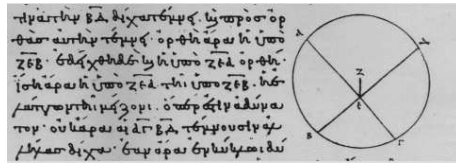 τινα τὴν ΒΔ δίχα τέμνει. καὶ πρὸς ὀρ
θὰς αὐτὴν τέμνει. ὀρθὴ ἄρα ἡ ὑπὸ
ΖΕΒ. ἐδείχθη δὲ καὶ ἡ ὑπὸ ΖΕΑ ὀρθή.
ἴση ἄρα ἡ ὑπὸ ΖΕΑ τῆι ὑπὸ ΖΕΒ. ἡ ἐ
λάττων τῆι μείζονι. ὅπερ ἐστὶν ἀδύνα
τον. οὐκ ἄρα αἱ ΑΓ ΒΔ τέμνουσιν ἀλ
λήλας δίχα. ἐὰν ἄρα ἐν κύκλωι δύ
Α
Δ
Ζ
Ε
Β
Γ